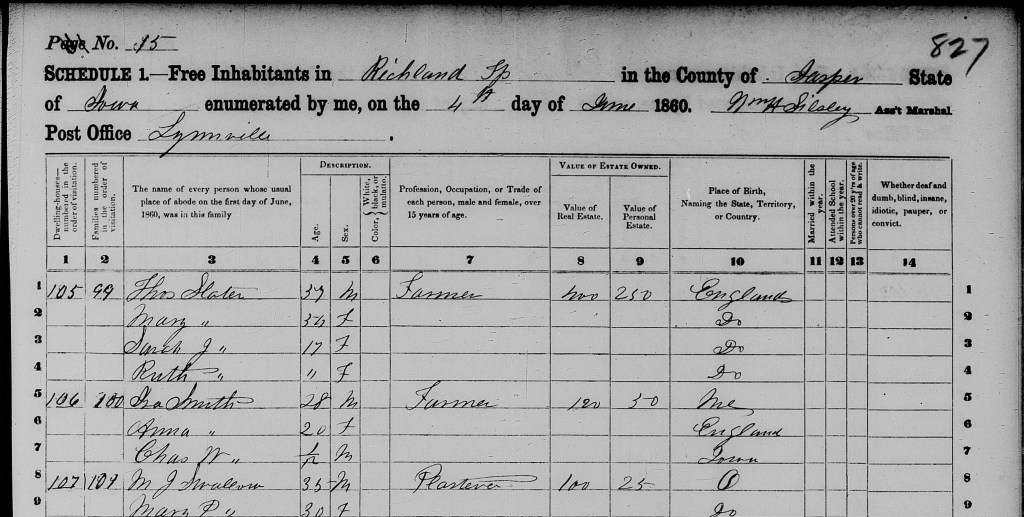 Page No. 15
827
SCHEDULE 1.—Free Inhabitants in Richland Tp in the County of Jasper State
of Iowa enumerated by me, on the 4th day of June 1860. Wm H Silsley Ass't Marshal
Post Office Lynnville.
DESCRIPTION. VALUE OF ESTATE OWNED.
Dwelling-houses—numbered in the order of visitation. Families numbered in the order of visitation. The name of every person whose usual place of abode on the first day of June, 1860, was in this family Age. Sex. Color, { White, black, or mulatto. Profession, Occupation, or Trade of each person, male and female, over 15 years of age. Value of Real Estate. Value of Personal Estate. Place of Birth, Naming the State, Territory, or Country. Married within the year. Attended School within the year. Persons over 20 y'rs of age who cannot read & write. Whether deaf and dumb, blind, insane, idiotic, pauper, or convict.
1 2 3 4 5 6 7 8 9 10 11 12 13 14
1 105 99 Thos Slater M Farmer 400 250 England 1
2 Mary " F Do 2
3 Sarah J " 17 F Do 3
4 Ruth " " F Do 4
5 106 100 Ira Smith 28 M Farmer 120 50 Me 5
6 Anna " 20 F England 6
7 Chas W " M Iowa 7
8 107 101 M J 35 M Plasterer 100 25 O 8
9 Mary P " 30 F Do 9